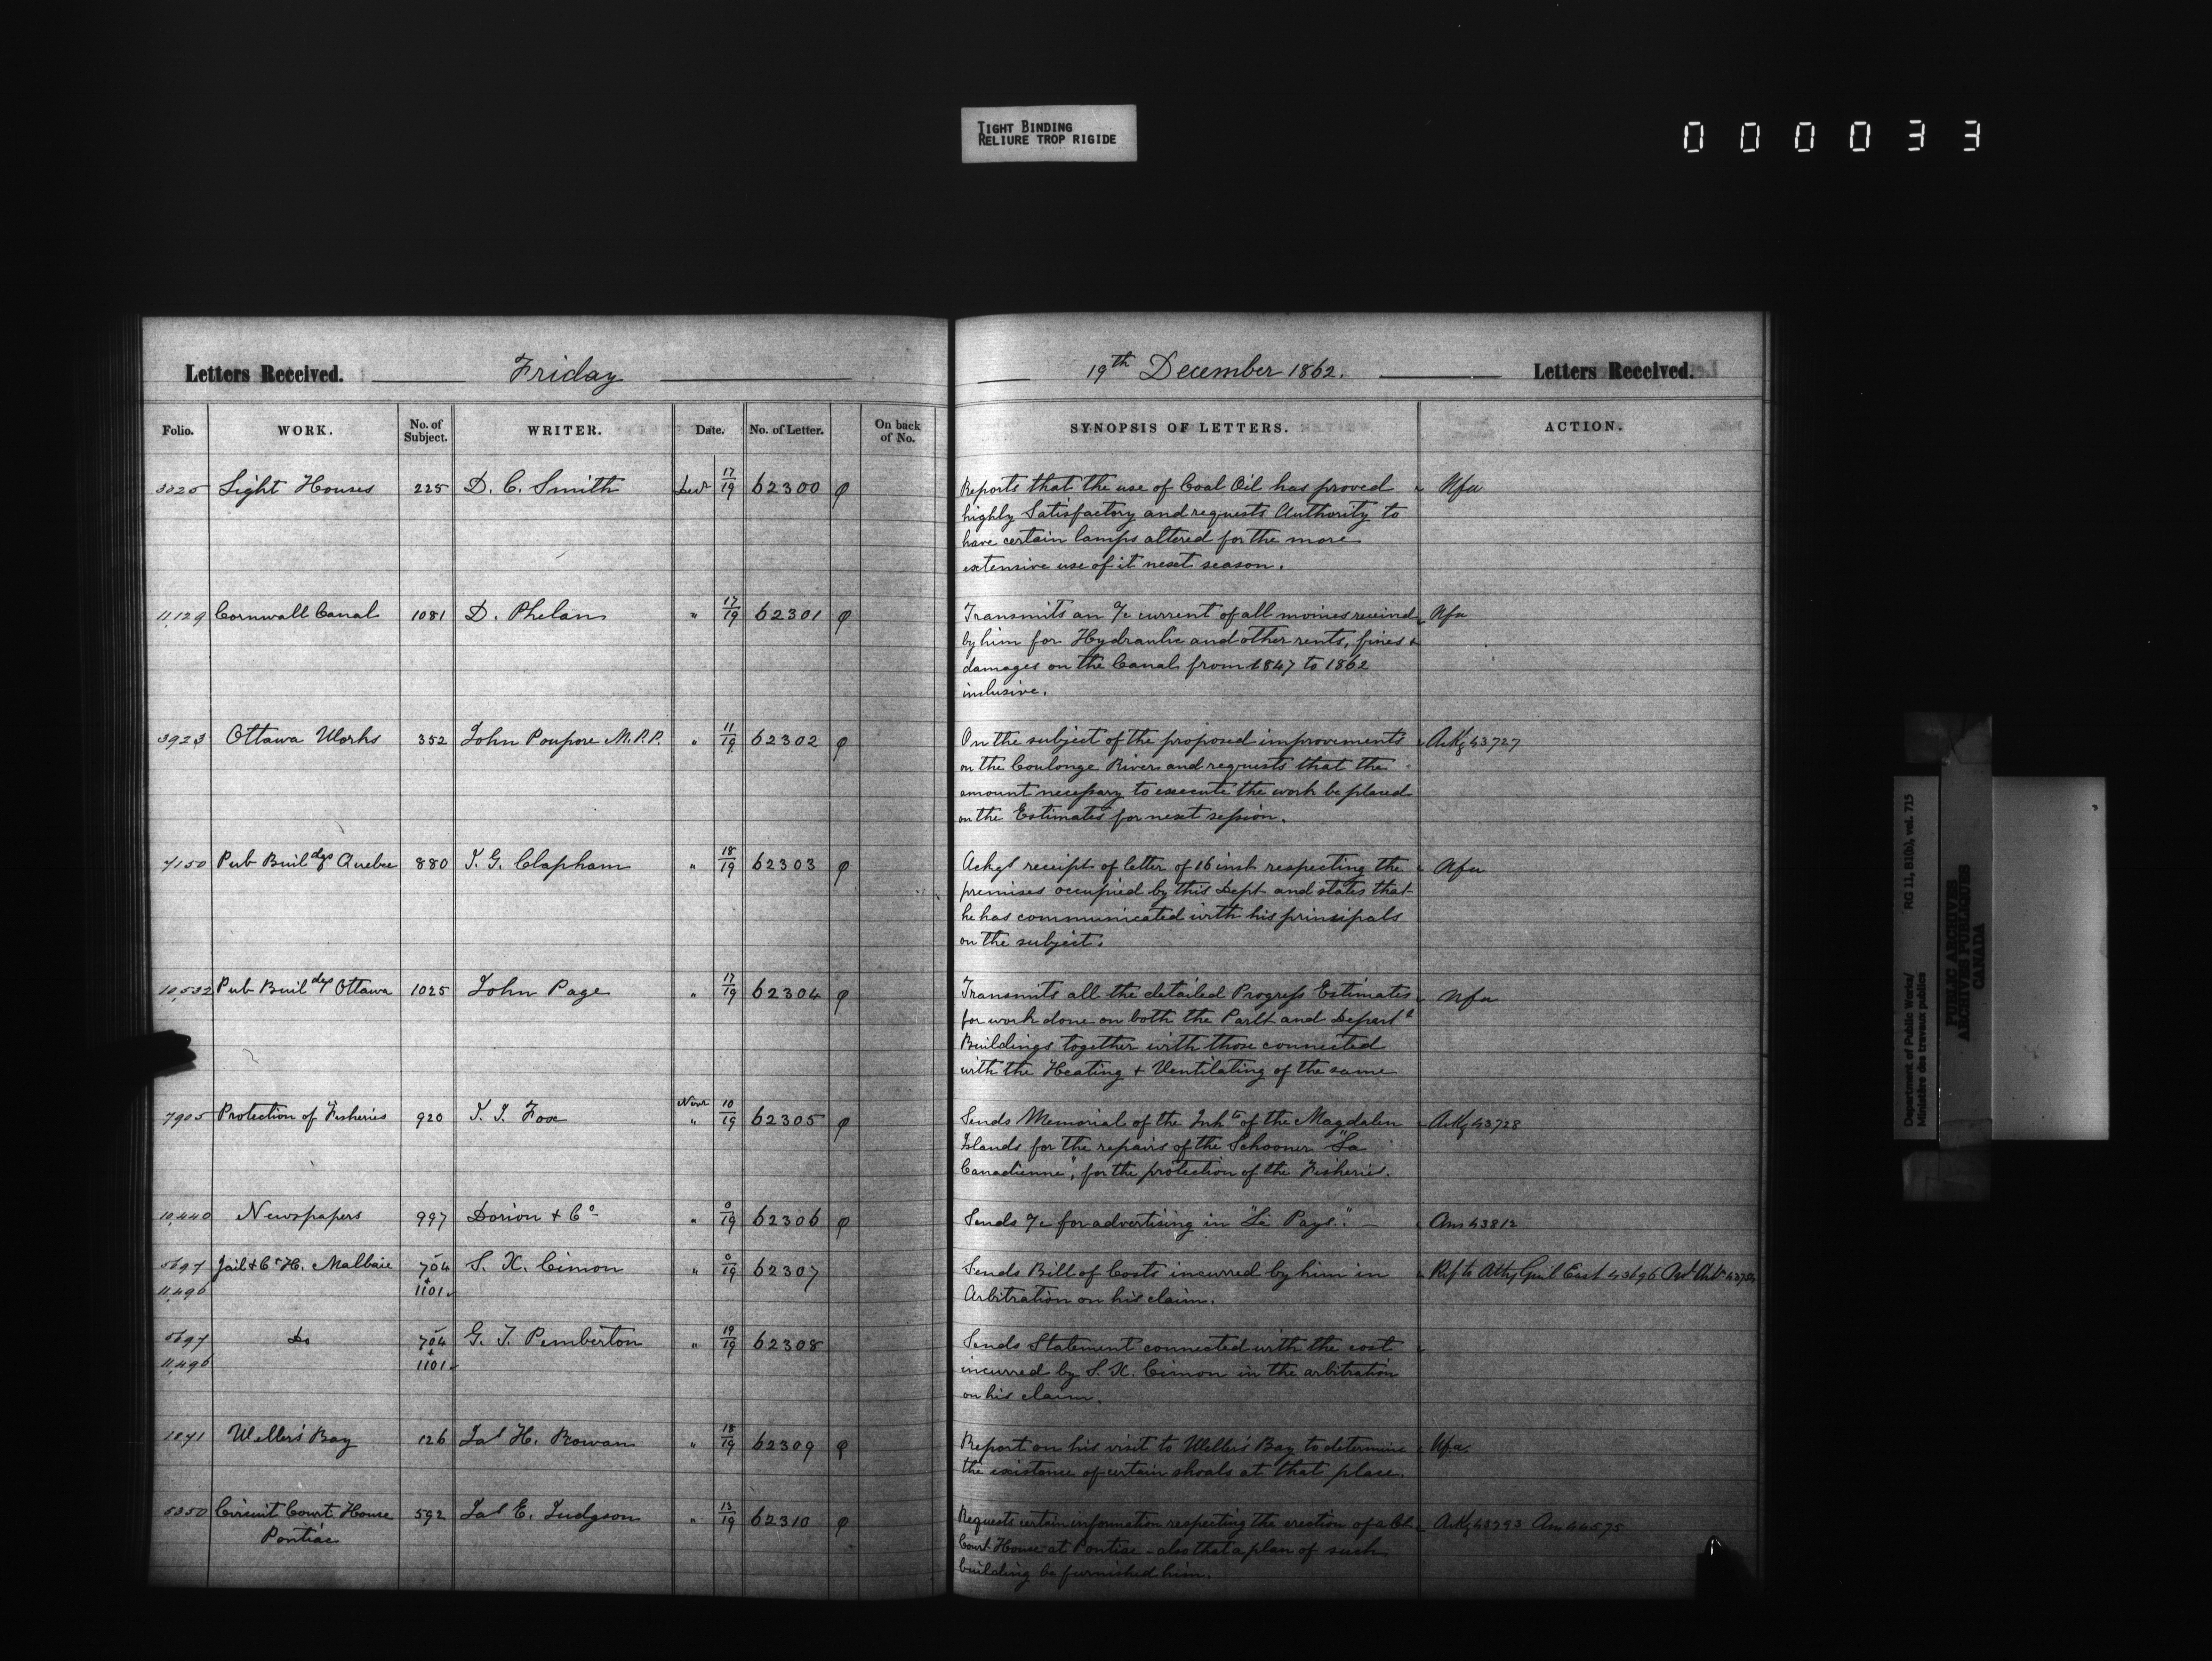 TIGHT BINDING
RELIURE TROP RIGIDE
000033
Letters Received. Friday 19th December 1862. Letters Received.
Folio. WORK. No. of Subject. WRITER. Date. No. of Letter. On back of No. SYNOPSIS OF LETTERS. ACTION.
3025 Light Houses 225 D. C. Smith Decr 17/19 62300 φ Reports that the use of Coal Oil has proved Nfa
highly Satisfactory and requests Authority to
have certain lamps altered for the more
extensive use of it next season.
11,129 Cornwall Canal 1081 D. Phelan " 17/19 62301 φ Transmits an a/c current of all monies received Nfa
by him for Hydraulic and other rents, fines &
damages on the Canal from 1847 to 1862
inclusive.
3923 Ottawa Works 352 John Poupore M.P.P. " 11/19 62302 φ On the subject of the proposed improvements Ackg 43727
on the Coulonge River and requests that the
amount necessary to execute the work be placed
on the Estimates for next session.
7150 Pub Buildgs Quebec 880 J. G. Clapham " 18/19 62303 φ Ackgs receipt of letter of 16 inst respecting the Nfa
premises occupied by this Dept and states that
he has communicated with his principals
on the subject.
10,532 Pub Buildgs Ottawa 1025 John Page " 17/19 62304 φ Transmits all the detailed Progress Estimates Nfa
for work done on both the Parlt and Departl
Buildings together with those connected
with the Heating & Ventilating of the same
7905 Protection of Fisheries 920 J. J. Fox Novr " 10/19 62305 φ Sends Memorial of the Inhts of the Magdalen Ackg 43728
Islands for the repairs of the Schooner "La
Canadienne", for the protection of the Fisheries.
10,440 Newspapers 997 Dorion & Co " 0/19 62306 φ Sends a/c for advertising in "Le Pays." Ans 43812
5697 Jail & Ct H. Malbaie 704 S. X. Cimon " 0/19 62307 Sends Bill of Costs incurred by him in Ref to Atty Genl East 43696
11,496 & 1101 Arbitration on his claim.
5697 Do 704 G. T. Pemberton " 19/19 62308 Sends Statement connected with the cost
11,496 & 1101 incurred by S. X. Cimon in the arbitration
on his claim.
1871 Weller's Bay 126 Jas H. Rowan " 18/19 62309 φ Report on his visit to Weller's Bay to determine Nfa
the existance of certain shoals at that place.
5350 Circuit Court House 592 Jas E. Judgson " 13/19 62310 φ Requests certain information respecting the erection of a Ct. Ackg 43793 Ans 44575
Pontiac Court House at Pontiac - also that a plan of such
building be furnished him.
Department of Public Works/ RG 11, B1(b), vol. 715
Ministère des travaux publics
PUBLIC ARCHIVES
ARCHIVES PUBLIQUES
CANADA